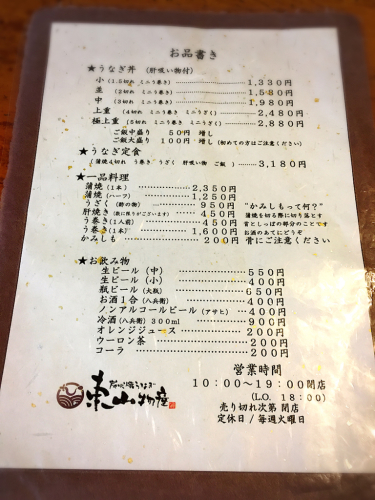 お品書き
★うなぎ丼 (肝吸い物付)
小 (1.5切れ ミニう巻き) 1,330円
並 (2切れ ミニう巻き) 1,580円
中 (3切れ ミニう巻き) 1,980円
上重 (4切れ ミニう巻き ミニうざく) 2,480円
極上重 (5切れ ミニう巻き ミニうざく) 2,880円
ご飯中盛り 50円 増し
ご飯大盛り 100円 増し (初めての方はご注意ください)
★うなぎ定食
(蒲焼4切れ う巻き うざく 肝吸い物 ご飯) 3,180円
★一品料理
蒲焼 (1本) 2,350円
蒲焼 (ハーフ) 1,250円
うざく (酢の物) 950円
肝焼き (数に限りがございます) 450円
う巻き (1人前) 450円
う巻き (1本) 1,600円
かみしも 200円
"かみしもって何?"
蒲焼を切る際に切り落とす
首としっぽの部分のことです
お酒のあてにどうぞ
骨にご注意ください
★お飲み物
生ビール (中) 550円
生ビール (小) 400円
瓶ビール (大瓶) 650円
お酒1合 (八兵衛) 400円
ノンアルコールビール (アサヒ) 400円
冷酒 (八兵衛) 300ml 900円
オレンジジュース 200円
ウーロン茶 200円
コーラ 200円
営業時間
10:00~19:00閉店
(L.O. 18:00)
売り切れ次第 閉店
定休日/毎週火曜日
東山物産